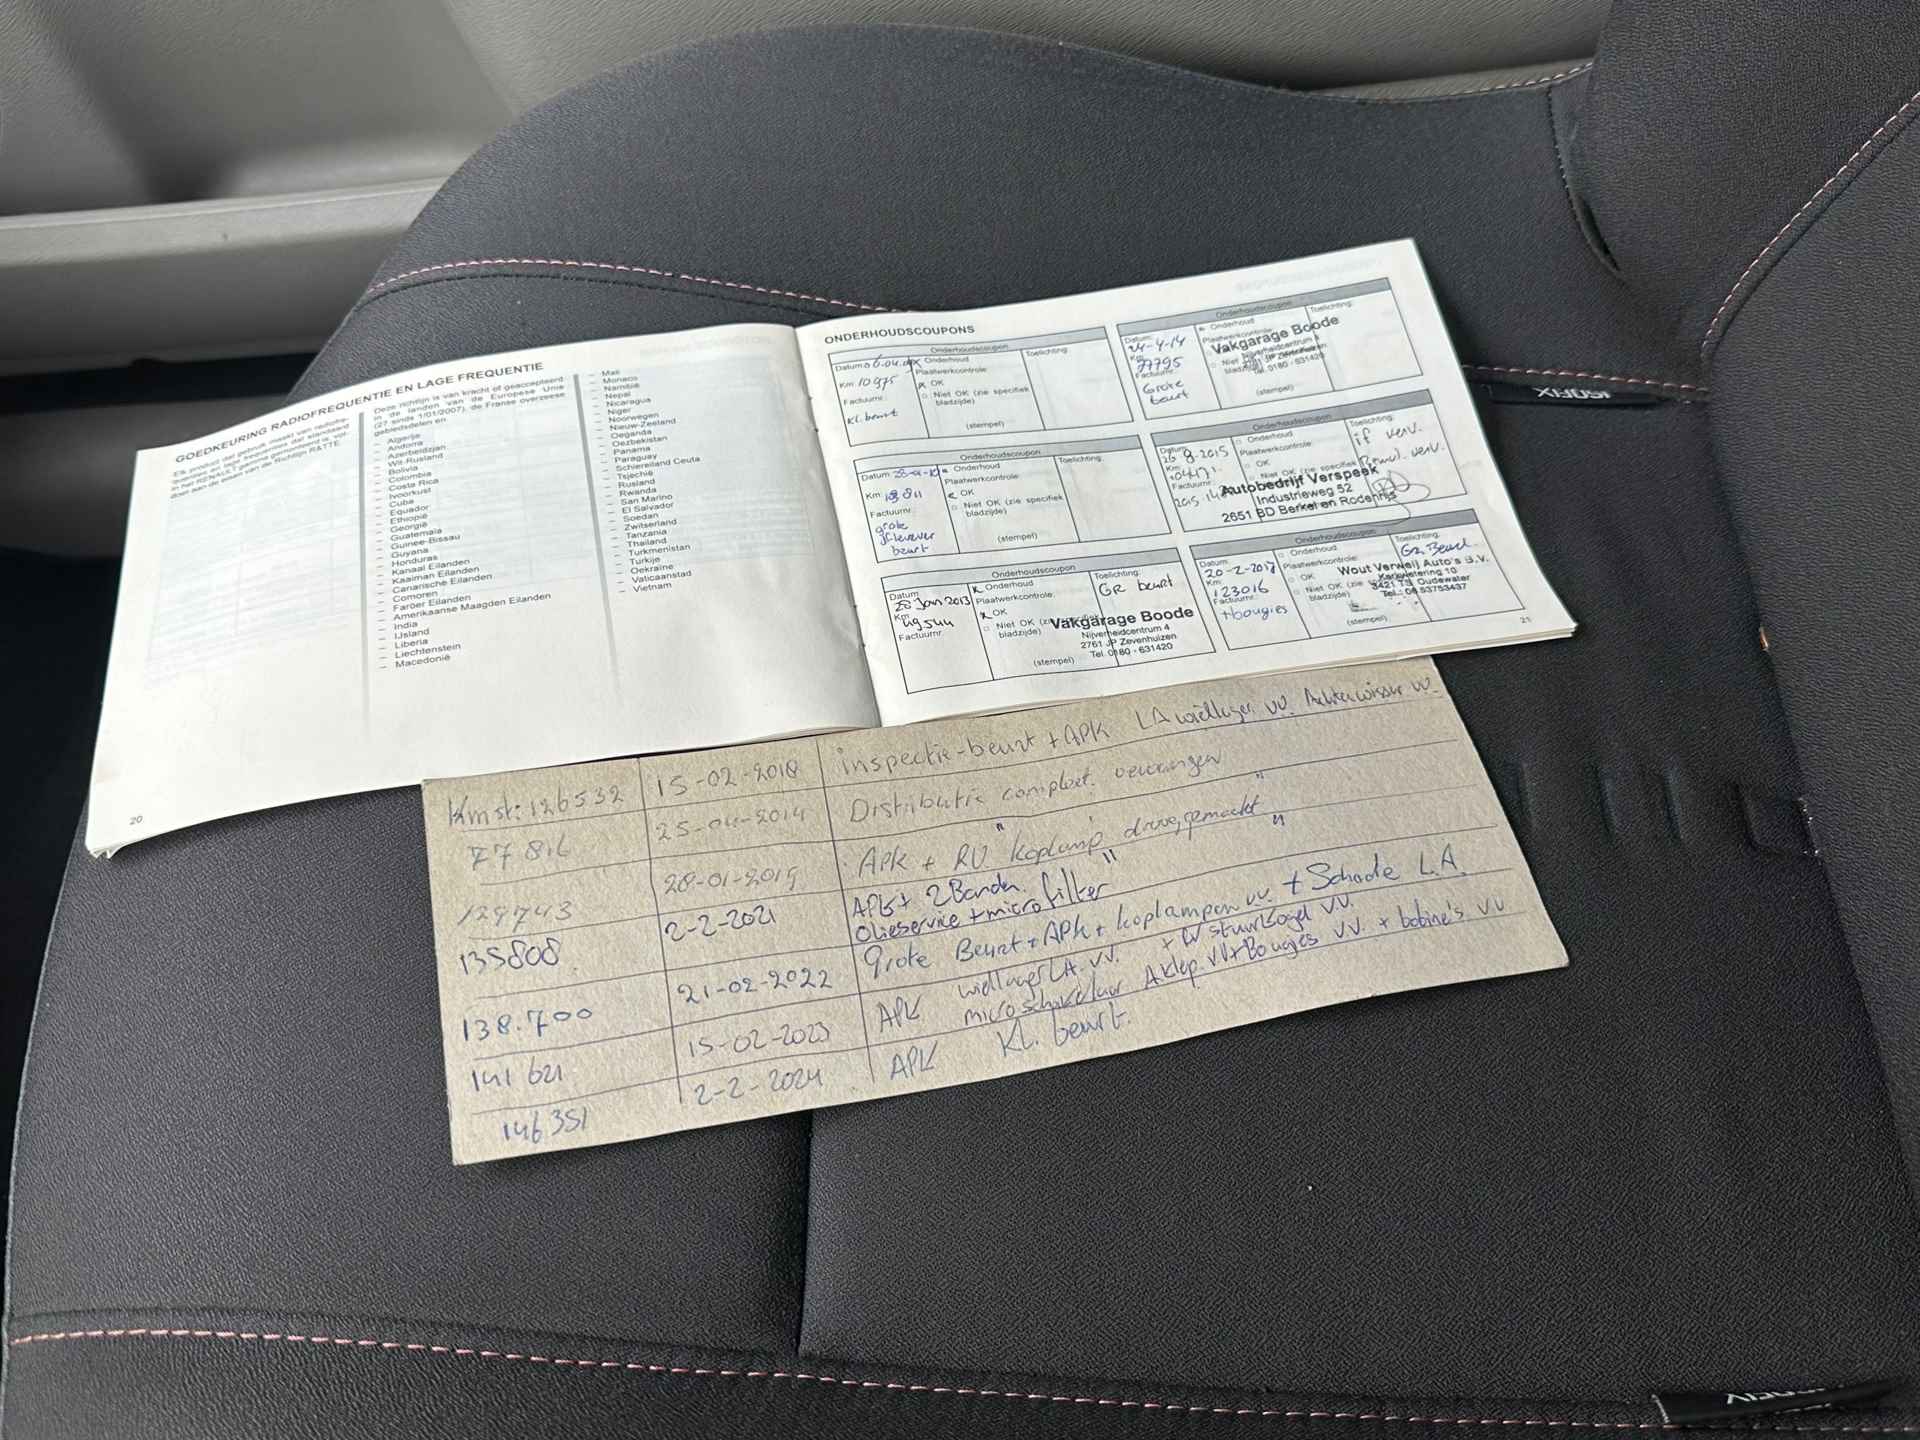 GOEDKEURING RADIOFREQUENTIE EN LAGE FREQUENTIE
Elk product dat gebruik maakt van radiofre-
quenties en lage frequenties dat standaard
in het RENAULT gamma gemonteerd is, vol-
doet aan de eisen van de Richtlijn R&TTE.
Deze richtlijn is van kracht of geaccepteerd
in de landen van de Europese Unie
(27 sinds 1/01/2007), de Franse overzeese
gebiedsdelen en
– Algerije
– Andorra
– Azerbeidzjan
– Wit-Rusland
– Bolivia
– Colombia
– Costa Rica
– Ivoorkust
– Cuba
– Equador
– Ethiopië
– Georgië
– Guatemala
– Guinee-Bissau
– Guyana
– Honduras
– Kanaal Eilanden
– Kaaiman Eilanden
– Canarische Eilanden
– Comoren
– Faröer Eilanden
– Amerikaanse Maagden Eilanden
– India
– IJsland
– Liberia
– Liechtenstein
– Macedonië
– Mali
– Monaco
– Namibië
– Nepal
– Nicaragua
– Niger
– Noorwegen
– Nieuw-Zeeland
– Oeganda
– Oezbekistan
– Panama
– Paraguay
– Schiereiland Ceuta
– Tsjechië
– Rusland
– Rwanda
– San Marino
– El Salvador
– Soedan
– Zwitserland
– Tanzania
– Thailand
– Turkmenistan
– Turkije
– Oekraïne
– Vaticaanstad
– Vietnam
20
ONDERHOUDSCOUPONS
Onderhoudscoupon
Datum 06.04
Km 10975
Factuurnr.
Kl. beurt
Onderhoud
Plaatwerkcontrole:
x OK
Niet OK (zie specifiek
bladzijde)
(stempel)
Toelichting:
Onderhoudscoupon
Datum
Km
Factuurnr.
grote
beurt
Onderhoud
Plaatwerkcontrole:
x OK
Niet OK (zie specifiek
bladzijde)
(stempel)
Toelichting:
Onderhoudscoupon
Datum
28 Jan 2013
Km
49544
Factuurnr.
x Onderhoud
Plaatwerkcontrole:
x OK
Niet OK
bladzijde)
(stempel)
Toelichting:
GR beurt
Vakgarage Boode
Nijverheidcentrum 4
2761 JP Zevenhuizen
Tel. 0180 - 631420
Onderhoudscoupon
Datum:
24-4-14
Km
77795
Factuurnr.
Grote
beurt
Onderhoud
Plaatwerkcontrole:
Toelichting:
Vakgarage Boode
Nijverheidcentrum 4
2761 JP Zevenhuizen
Tel. 0180 - 631420
(stempel)
Onderhoudscoupon
Datum
26 8-2015
Km
Factuurnr.
Onderhoud
Plaatwerkcontrole:
OK
Niet OK (zie specifiek
Toelichting:
verv.
verv.
Autobedrijf Verspeek
Industrieweg 52
2651 BD Berkel en Rodenrijs
Onderhoudscoupon
Datum
20-2-2017
Km:
123016
Factuurnr.
+bougies
Onderhoud
Plaatwerkcontrole:
OK
Niet OK
bladzijde)
Toelichting:
Gr. Beurt.
Wout Verweij Auto's B.V.
3421 TS Oudewater
Tel.: 06 53753437
(stempel)
21
Kmst: 126532 15-02-2018 inspectie-beurt + APK LA wiellager vv. Achterwisser vv.
77816 25-04-2014 Distributie compleet vervangen
129743 28-01-2019 APK + RV "koplamp drooggemaakt"
135808 2-2-2021 APK + 2 Banden.
Olieservice + microfilter
138.700 21-02-2022 Grote Beurt + APK + koplampen vv. + Schade L.A.
141 621 15-02-2023 APK wiellager LA. v.v. + stuurkogel v.v.
microschakelaar Aklep. vv + Bougies v.v. + bobine's v.v
146351 2-2-2024 APK Kl. beurt.
ISOFIX